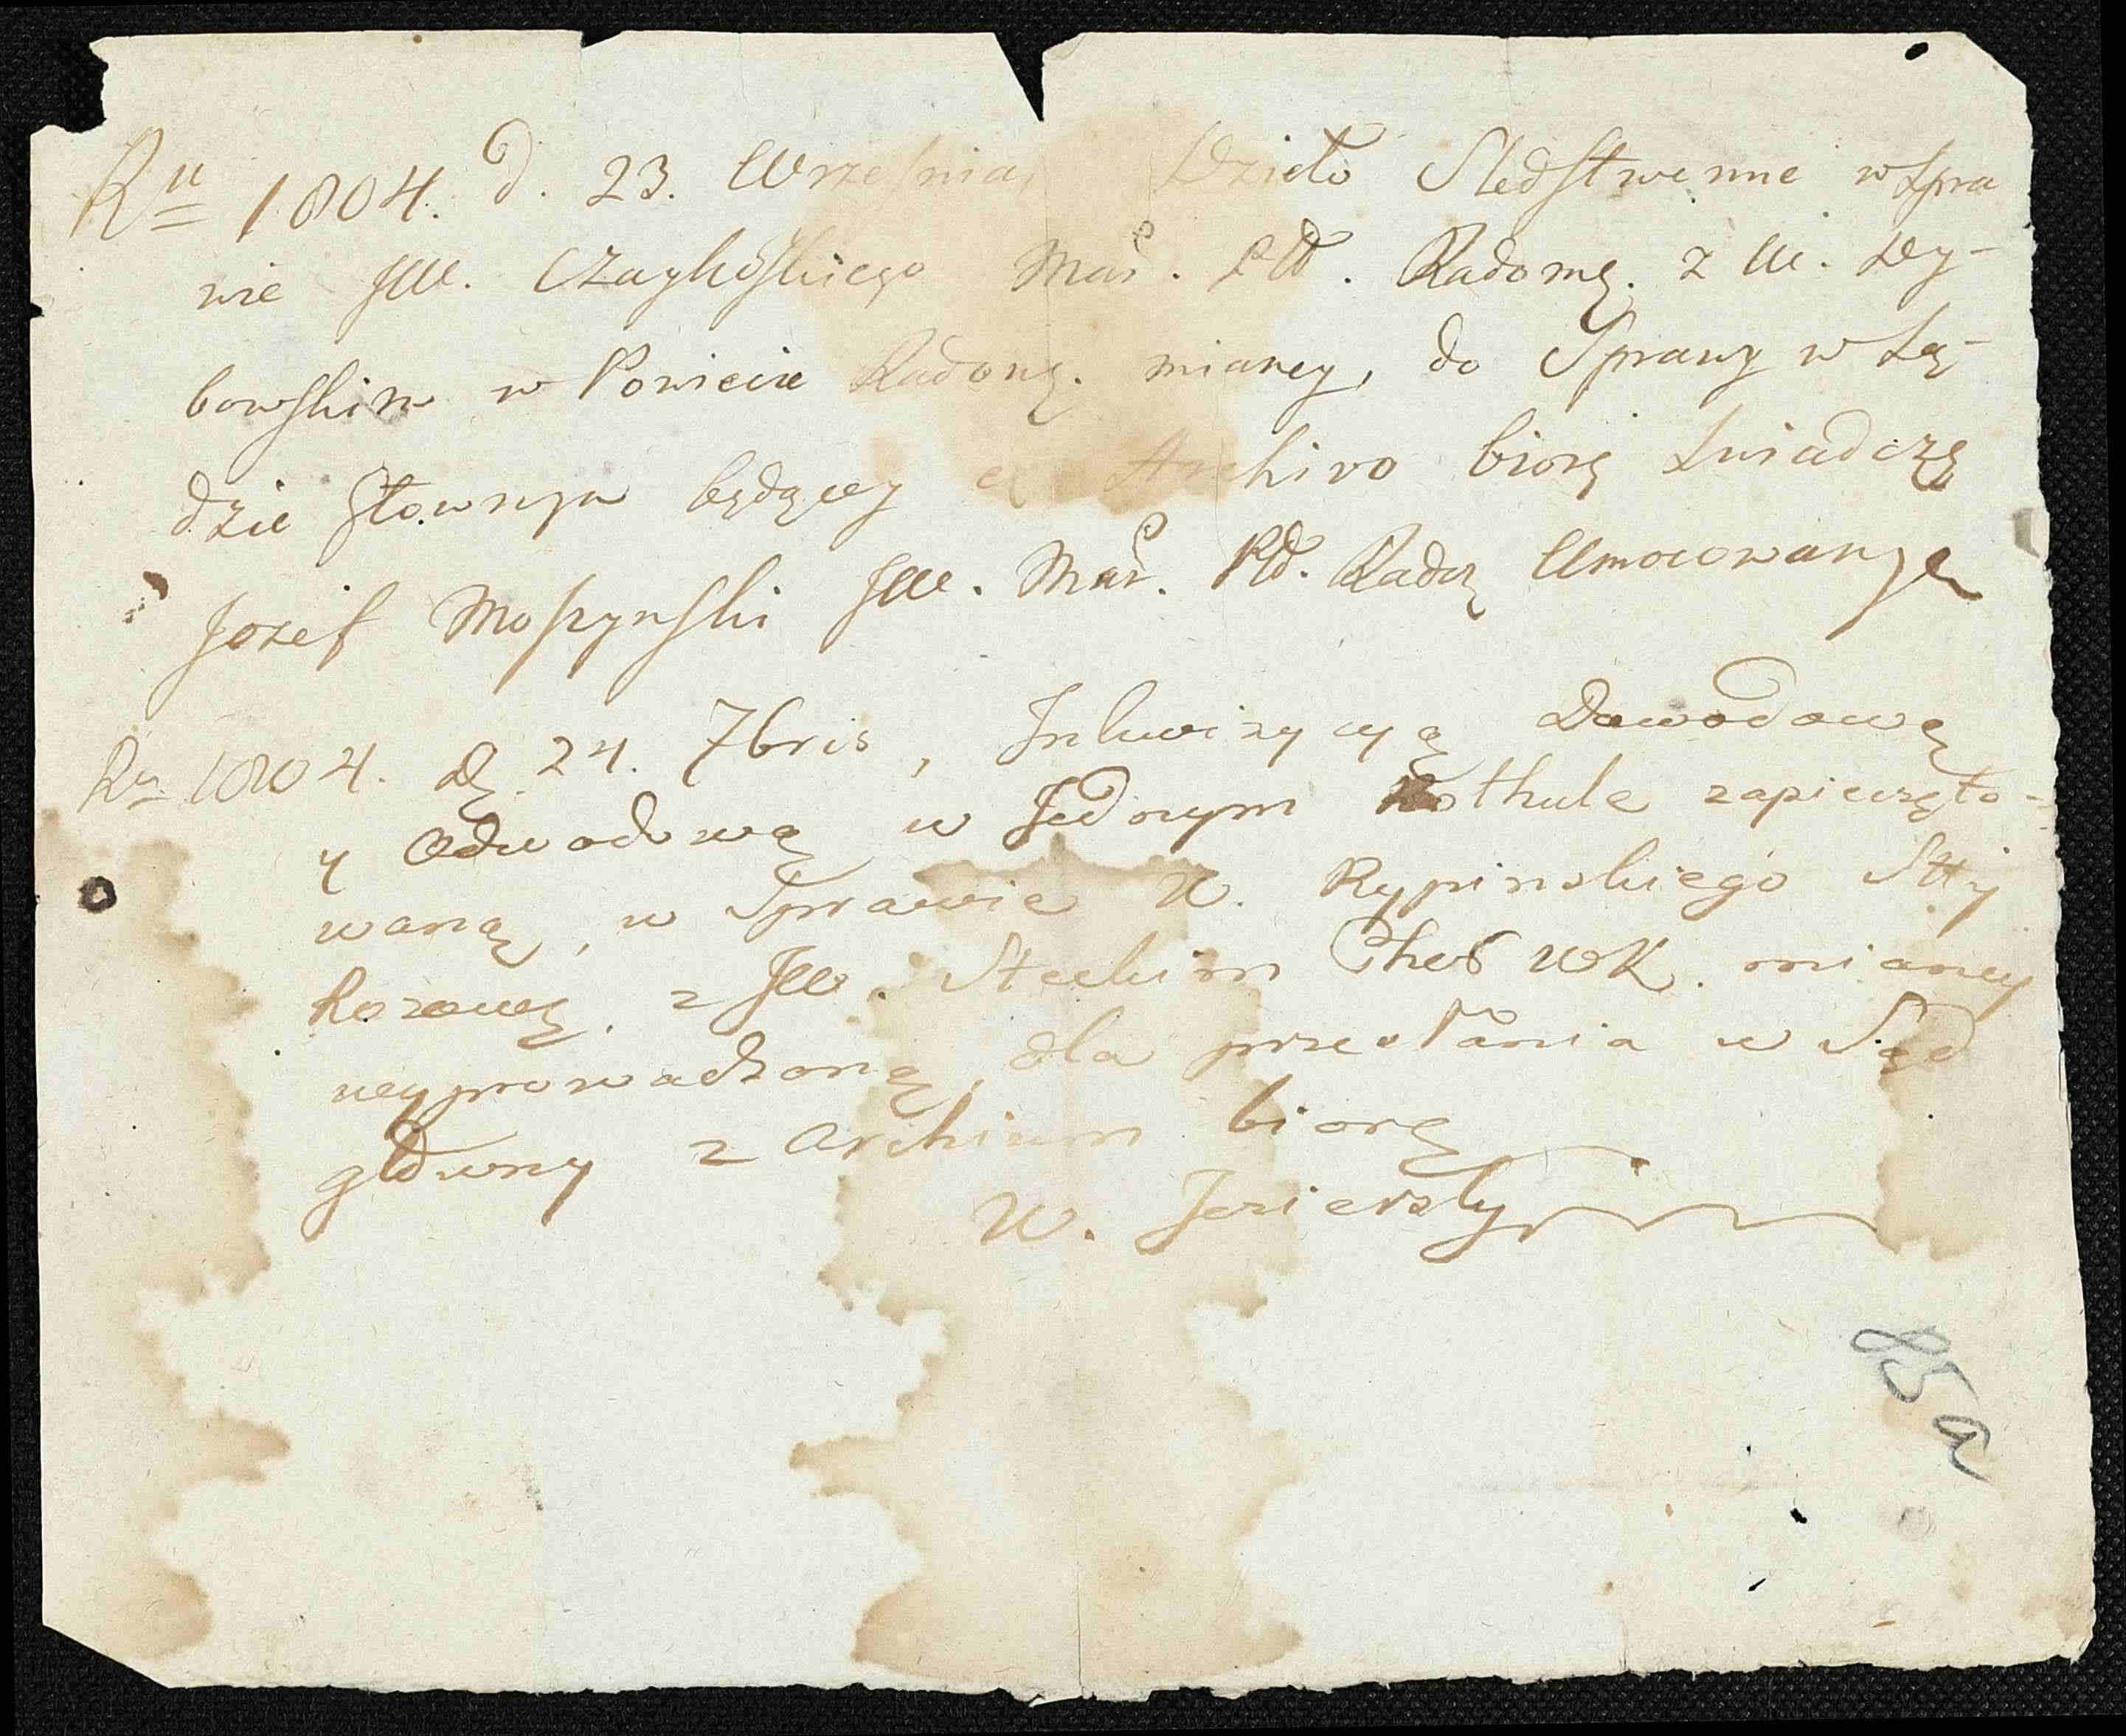 Ru 1804. d. 23. Wrzesnia, Dzieło Sledstwenne w Spra
wie JW. Czaykoskiego Mar. Ptt. Radomy. z W. Dy-
bowskim w Powiecie Radomy. mianey, do Sprawy w Są-
dzie Głownym będącey ex Archivo biorę Swiadczę
Jozef Moszynski JW. Mar. Ptt. Umocowanym
Ru 1804. D. 24. 7bris, Inkwizycyą Dowodową
y Odwodową w Jednym Rothule zapieczęto-
waną, w Sprawie W. Rypinskiego
z JW. Steckim Chor WK. mianey
wyprowadzoną, dla przesłania w Sąd
główny z Archiwm biorę
W. Jezierski
85a